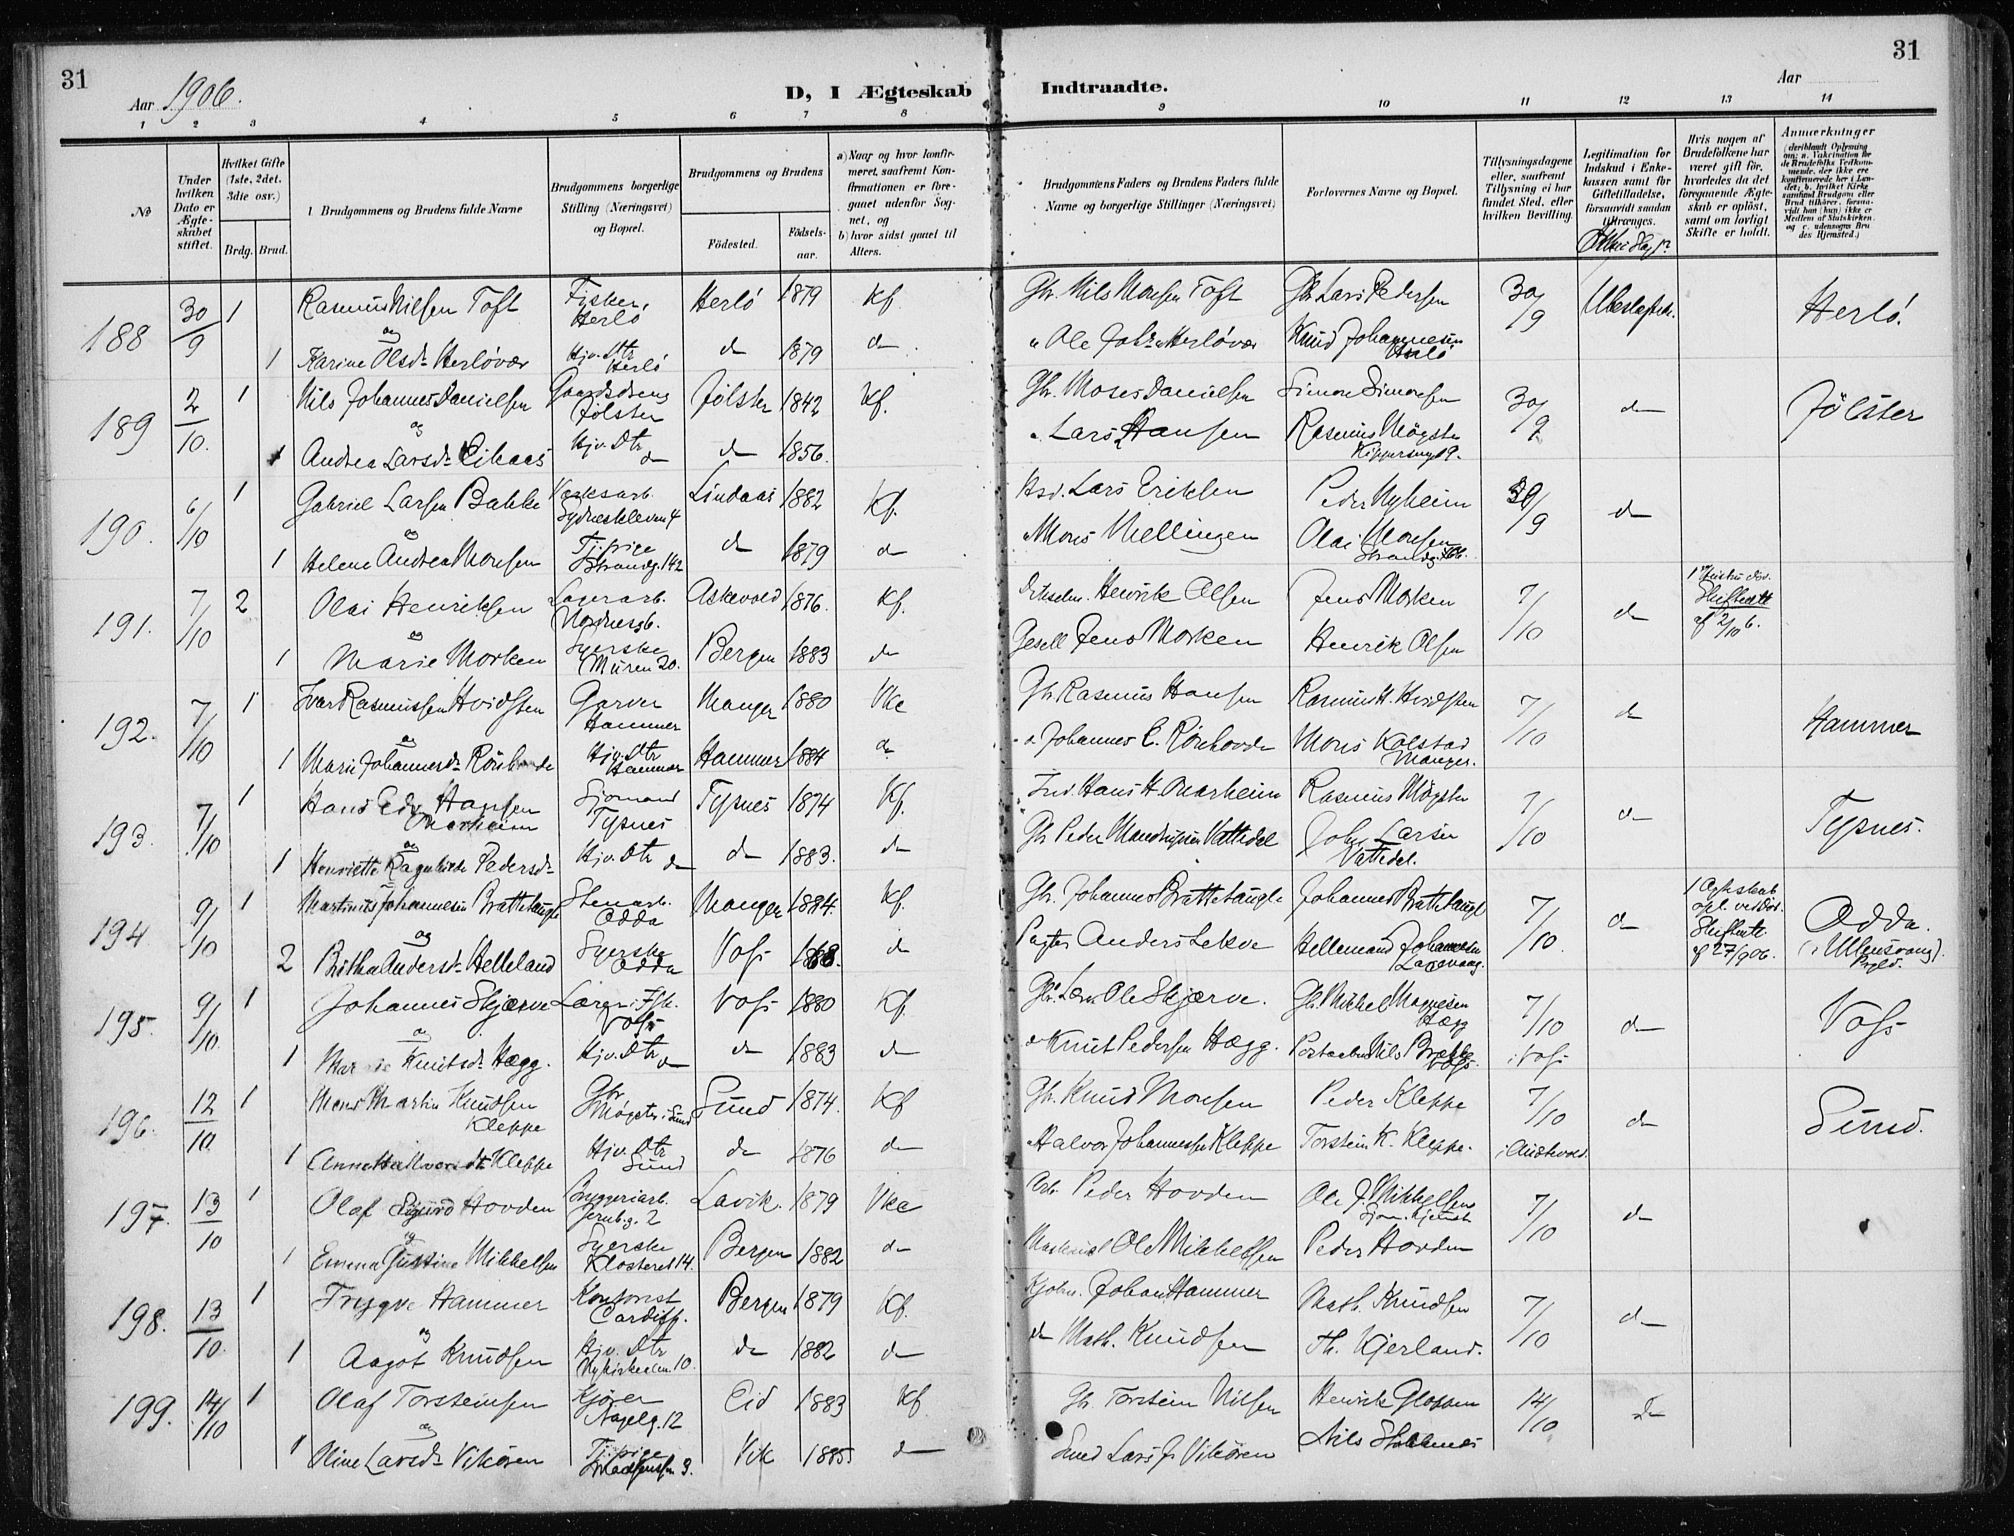 31
Aar 1906.
D, I Ægteskab Indtraadte.
Aar
31
1 2 3 4 5 6 7 8 9 10 11 12 13 14
No
Under hvilken Dato er Ægteskabet stiftet.
Hvilket Gifte (1ste, 2det, 3die osv.)
Brdg. Brud.
Brudgommens og Brudens fulde Navne
Brudgommens borgerlige Stilling (Næringsvei) og Bopæl.
Brudgommens og Brudens
Fødested.
Fødselsaar.
a) Naar og hvor konfirmeret, saafremt Konfirmationen er foregaaet udenfor Sognet, og
b) hvor sidst gaaet til Alters.
Brudgommens Faders og Brudens Faders fulde Navne og borgerlige Stillinger (Næringsvei)
Forlovernes Navne og Bopæl.
Tillysningsdagene eller, saafremt Tillysning ei har fundet Sted, efter hvilken Bevilling.
Legitimation for Indskud i Enkekassen samt for Giftetilladelse, forsaavidt saadan tiltrænges.
Hvis nogen af Brudefolkene har været gift før, hvorledes da det foregaaende Ægteskab er opløst, samt om lovligt Skifte er holdt.
Anmærkninger
188 30/9 1 Rasmus Nilsen Toft Fisker, Herlö Herlö 1879 Kf Gbr. Nils Monsen Toft Gbr Lars Pedersen 30/9 Ubeslægtede. Herlö.
og
1 Karine Olsdr Herløvær Hjv. Dtr Herlö do 1879 do " Ole Johs. Herløvær Knud Johannesen Herlö
189 2/10. 1 Nils Johannes Danielsen Gaardsdreng Jølster Jølster 1842 Kf. Gbr. Moses Danielsen Simon Simonsen 30/9 do Jölster
og
1 Andrea Larsdr Eikaas Hjv. Dtr do do 1856. " Lars Hansen Rasmus Møgster
190. 6/10 1 Gabriel Larsen Bakke Værksarb. Sydneskleven 4 Lindaas 1882 Kf. Hsd. Lars Eriksen Peder Nyheim 30/9 do
og
1 Helene Andrea Monsen Tjpige Strandg. 142 do 1879 do " Mons Mellingen Olai Monsen
191. 7/10 2 Olai Henriksen Lagerarb. Nordnesg. Askevold 1876. Kf. Henrik Olsen Jens Morken 7/10 do Skifteatt af 2/10 6.
og
1 Marie Morken Syerske Muren 20. Bergen 1883 do Gesell Jens Morken Henrik Olsen
192. 7/10 1 Ivar Rasmussen Hvidsten Garver Hammer Manger 1880 Vke Gbr. Rasmus Hansen Rasmus H. Hvidsten 7/10 do Hammer
og
1 Marie Johannesdr Rörhovde Hjv. Dtr Hammer Hammer 1884 do " Johannes E. Rörhovde Mons Kolstad Manger.
193. 7/10 1 Hans Edv. Hansen Sjømand Tysnes Tysnes 1874 Kf. Ind. Hans H. Rasmus Møgster 7/10 do Tysnes.
og
1 Henriette Ragnhilde Pedersdr Hjv. Dtr do do 1883. do Gbr Peder Vattedal John Larsen Vattedal.
194. 9/10 1 Martinus Johannesen Brattetaugle Stenarb. Odda Manger 1884. Kf. Gbr. Johannes Brattetaugle Johannes Brattetaugl 7/10. do 1 Ægteskab opl. ved Död. Skifteatt. af 27/9 06. Odda. (i Ullensvang) Prgld.
og
2 Britha Andersdr Helleland Syerske Odda Voss 1868. do Anders Lekve Hellemand Johannesen Laxevaag.
195. 9/10. 1 Johannes Skjærve Lærer i Fsk. Voss Voss 1880 Kf. Ole Skjærve. Gbr. Mikkel Magnesen Hægg 7/10 do Voss
og
1 Knutsdr Hægg. Hjv. Dtr do do 1883 do " Knut Pedersen Hægg. Nils Brække Voss. i Voss
196. 12/10 1 Mons Martin Knudsen Kleppe Gbr Møgster i Sund Sund 1874. Kf Gbr. Knud Monsen Peder Kleppe 7/10 do Sund.
1 Anna Halvorsdr Kleppe Hjv. Dtr Sund do 1876 do " Halvor Johannessen Kleppe Torstein K. Kleppe. i Austevold.
197. 13/10 1 Olaf Sigurd Hovden Bryggeriarb. Jernbg. 2 Lavik. 1879 Vke Arb. Peder Hovden Ole J. Mikkelsen 7/10 do
og
1 Emma Justine Mikkelsen Syerske Klosteret 14. Bergen 1882 do Maskinist Ole Mikkelsen Peder Hovden
198. 13/10. 1 Trygve Hammer Kontorist Cardiff. Bergen 1879 Kf. Kjøbm. Johan Hammer Math. Knudsen 7/10 do
og
1 Aagot Knudsen Hjv. Dtr Nykirkealm 10 do 1882 do do Math. Knudsen Th. Kjerland.
199. 14/10 1 Olaf Torsteinsen Kjører Nagelg. 12 Eid 1883 Kf Gbr. Torstein Nilsen Henrik 14/10 do
og
1 Oline Larsdr Vikören Tjpige Vik 1885 do Smed Lars J. Vikören Nils